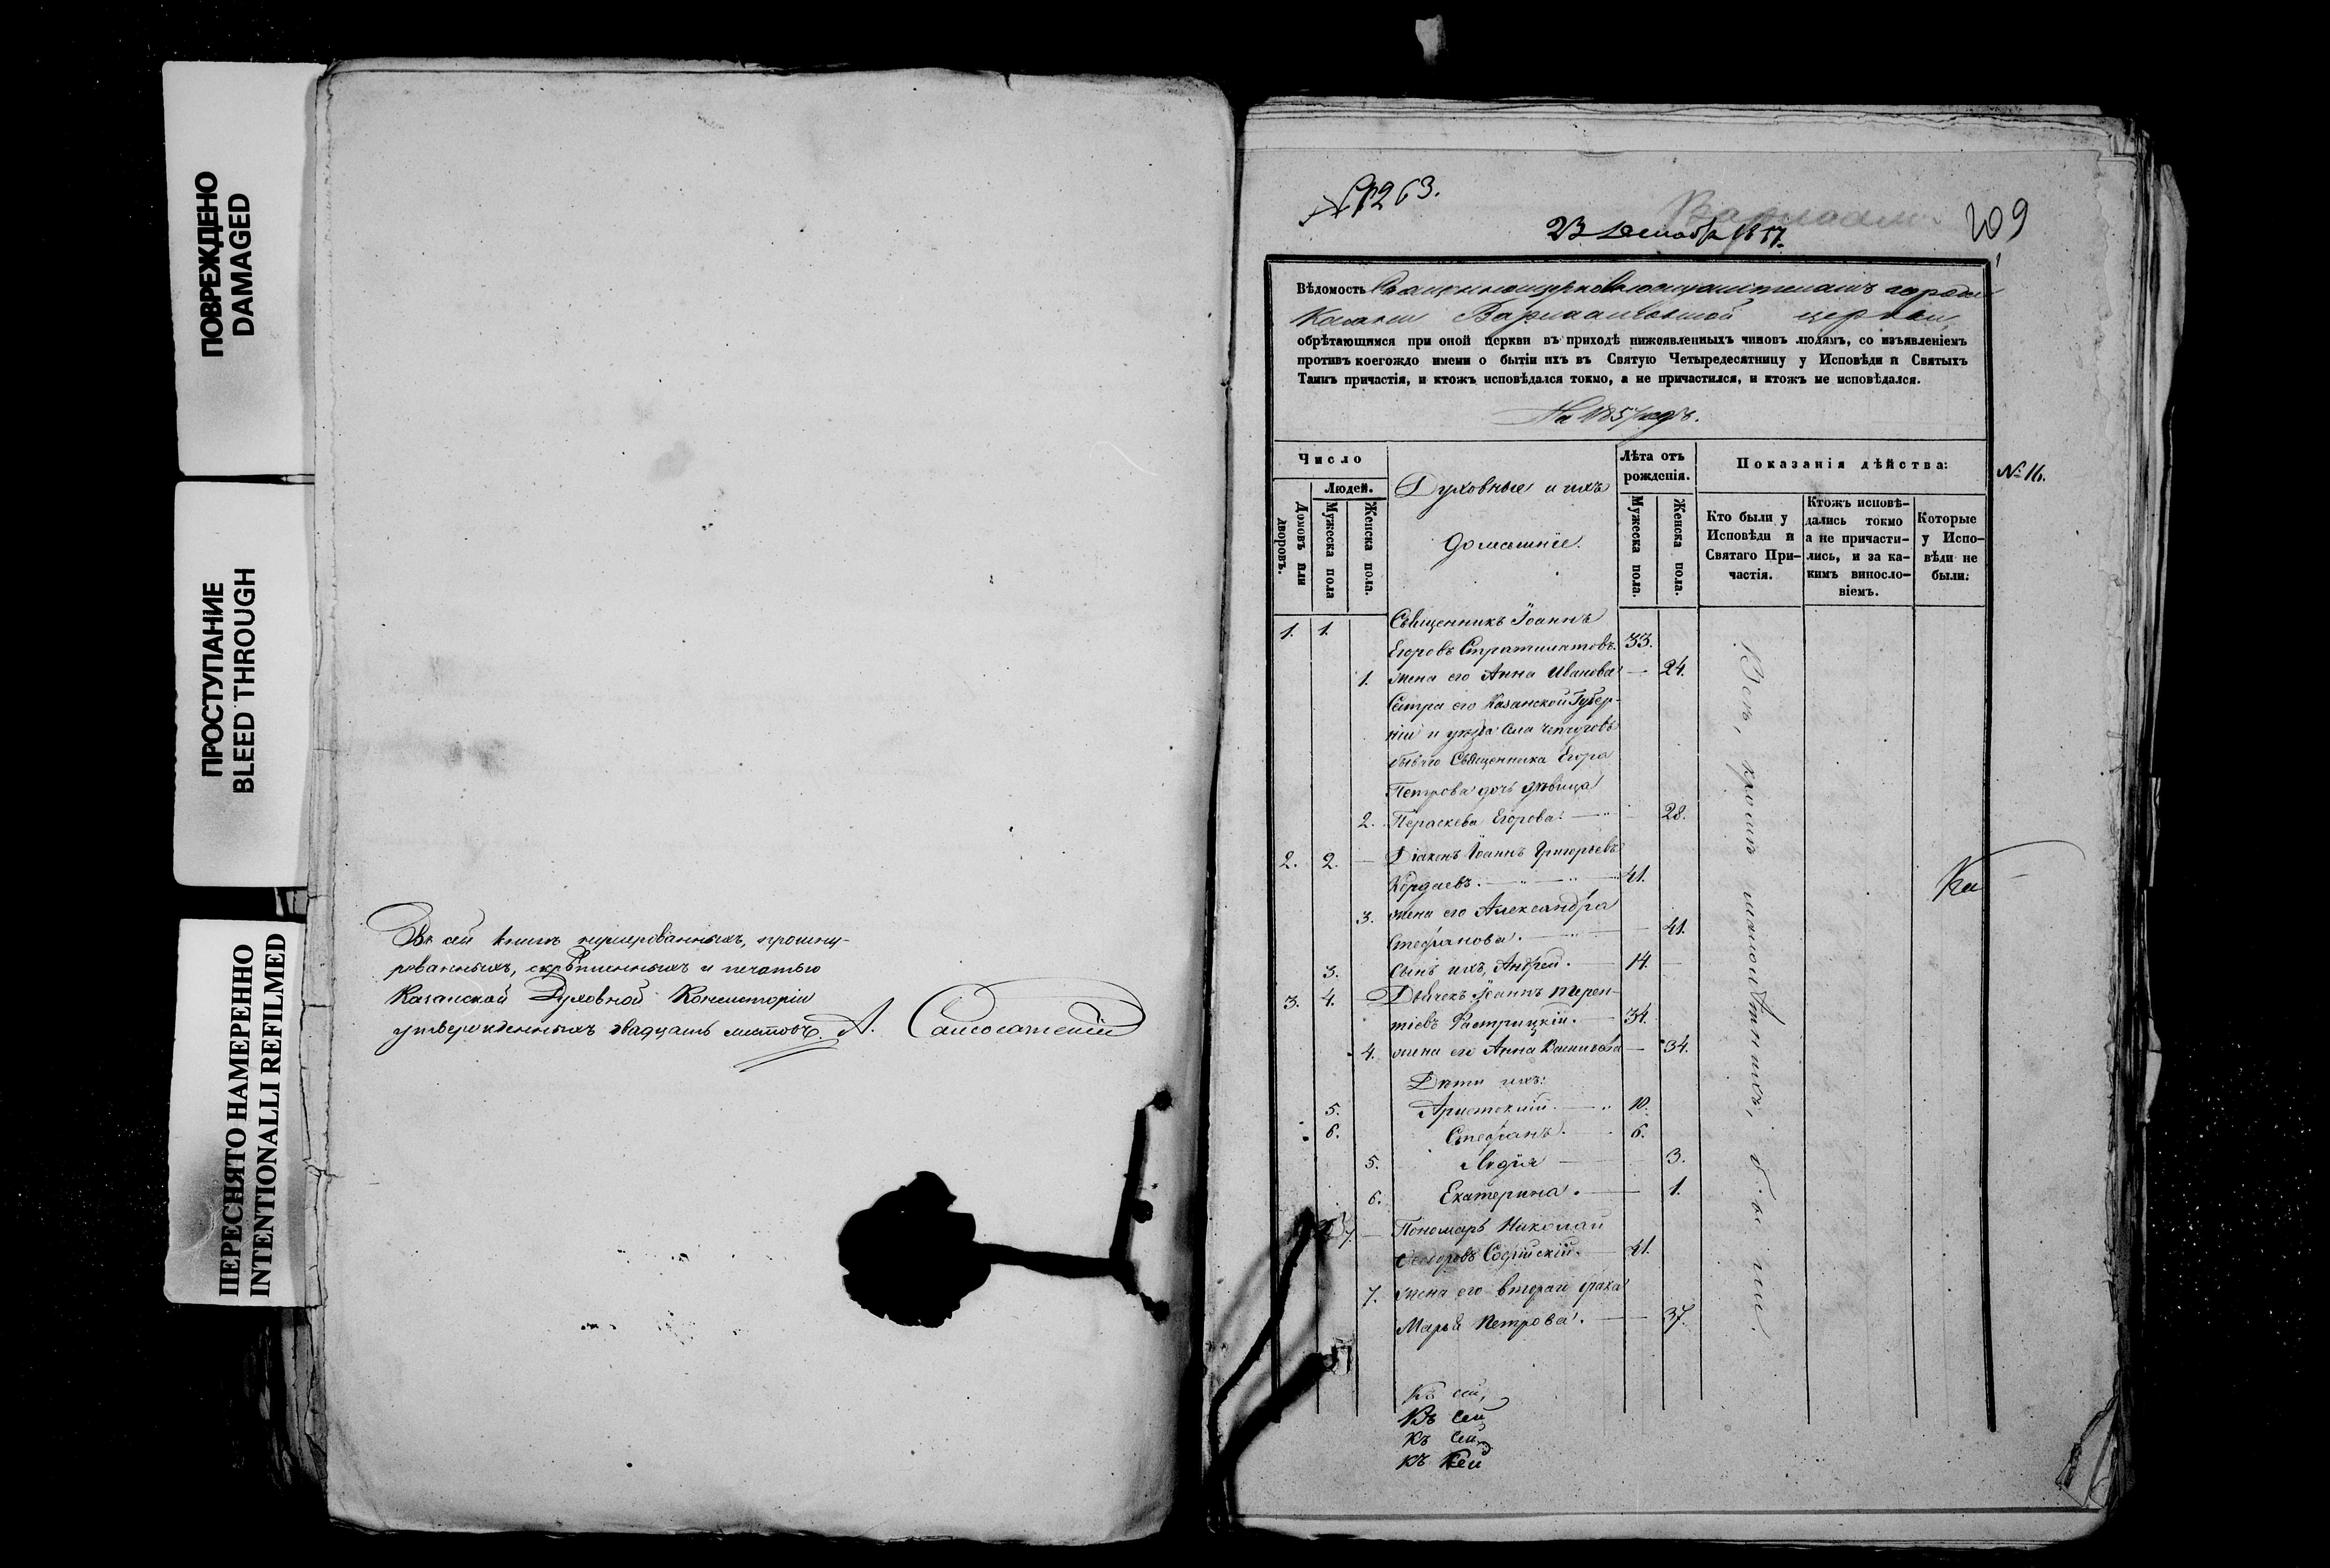 ПОВРЕЖДЕНО
DAMAGED
ПРОСТУПАНИЕ
BLEED THROUGH
ПЕРЕСНЯТО НАМЕРЕННО
INTENTIONALLI REFILMED
Въ сей книгѣ нумерованныхъ, прошну-
рованныхъ, скрѣпленныхъ и печатью
Казанской Духовной Консисторіи
утвержденныхъ двадцать листовъ. А.
№ 263.
209
23 Декабр 1857.
Вѣдомость Священноцерковнослужителямъ города
Казани Варлаамовской церкви,
обрѣтающимся при оной церкви въ приходѣ нижеявленныхъ чиновъ людямъ, со изъявленіемъ
противъ коегождо имени о бытіи ихъ въ Святую Четыредесятницу у Исповѣди и Святыхъ
Таинъ причастія, и ктожъ исповѣдался токмо, а не причастился, и ктожъ не исповѣдался.
На 1857 годъ.
Число
Людей.
Домовъ или дворовъ.
Мужеска пола
Женска пола.
Духовные и ихъ
домашніе.
Лѣта отъ
рожденія.
Мужеска пола.
Женска пола.
Показанія дѣйства:
Кто были у
Исповѣди и
Святаго При-
частія.
Ктожъ исповѣ-
дались токмо
а не причасти-
лись, и за ка-
кимъ винословіемъ.
Которые
у Испо-
вѣди не
были.
№ 16.
1. 1. Священникъ Іоаннъ
Егоровъ Стратилатовъ. 33.
1. жена его Анна Иванова — 24.
Сестра его Казанской Губер-
ніи и уѣзда села
бывшаго Священника Егора
Петрова дочь дѣвица
2. Параскева Егорова. — 28.
2. 2. — Діаконъ Іоаннъ Григорьевъ
41.
3. жена его Александра
Стефанова. — 41.
3. Сынъ ихъ, Андрей. — 14. —
3. 4. — Дьячекъ Іоаннъ Терен-
тіевъ 34.
4. жена его Анна — 34.
Дѣти ихъ:
5. 10.
6. Стефанъ. 6.
5. Лидія — 3.
6. Екатерина. — 1.
7. — Пономарь Николай
Ѳеодоровъ Софійскій. — 41.
7. жена его втораго брака
Марья Петрова. — 37.
Всѣ, кромѣ малолѣтнихъ, были.
Ка
Къ сей,
Къ сей
Къ сей
Къ сей